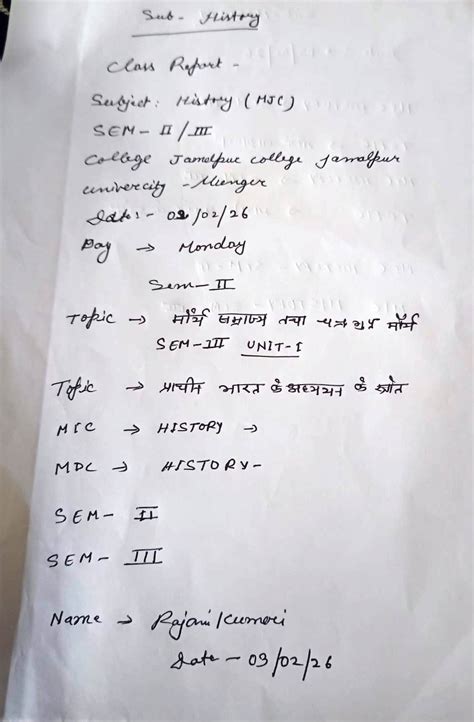 Sub - History
Class Report -
Subject: History (MJC)
SEM - II / III
College Jamalpur college Jamalpur
univercity - Munger
Date:- 02/02/26
Day → Monday
Sem - II
Topic → मौर्य साम्राज्य तथा मौर्य
SEM - III UNIT - I
Topic → प्राचीन भारत के अध्ययन के स्रोत
MIC → HISTORY →
MDC → HISTORY -
SEM - II
SEM - III
Name → Rajani Kumari
Date - 09/02/26